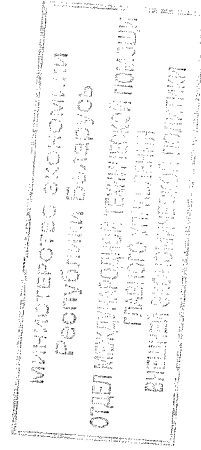 МИНИСТЕРСТВО ЭКОНОМИКИ
Республики Беларусь
ОТДЕЛ МЕЖДУНАРОДНОЙ ТЕХНИЧЕСКОЙ ПОМОЩИ
ГЛАВНОГО УПРАВЛЕНИЯ
ВНЕШНЕЙ ЭКОНОМИЧЕСКОЙ ПОЛИТИКИ